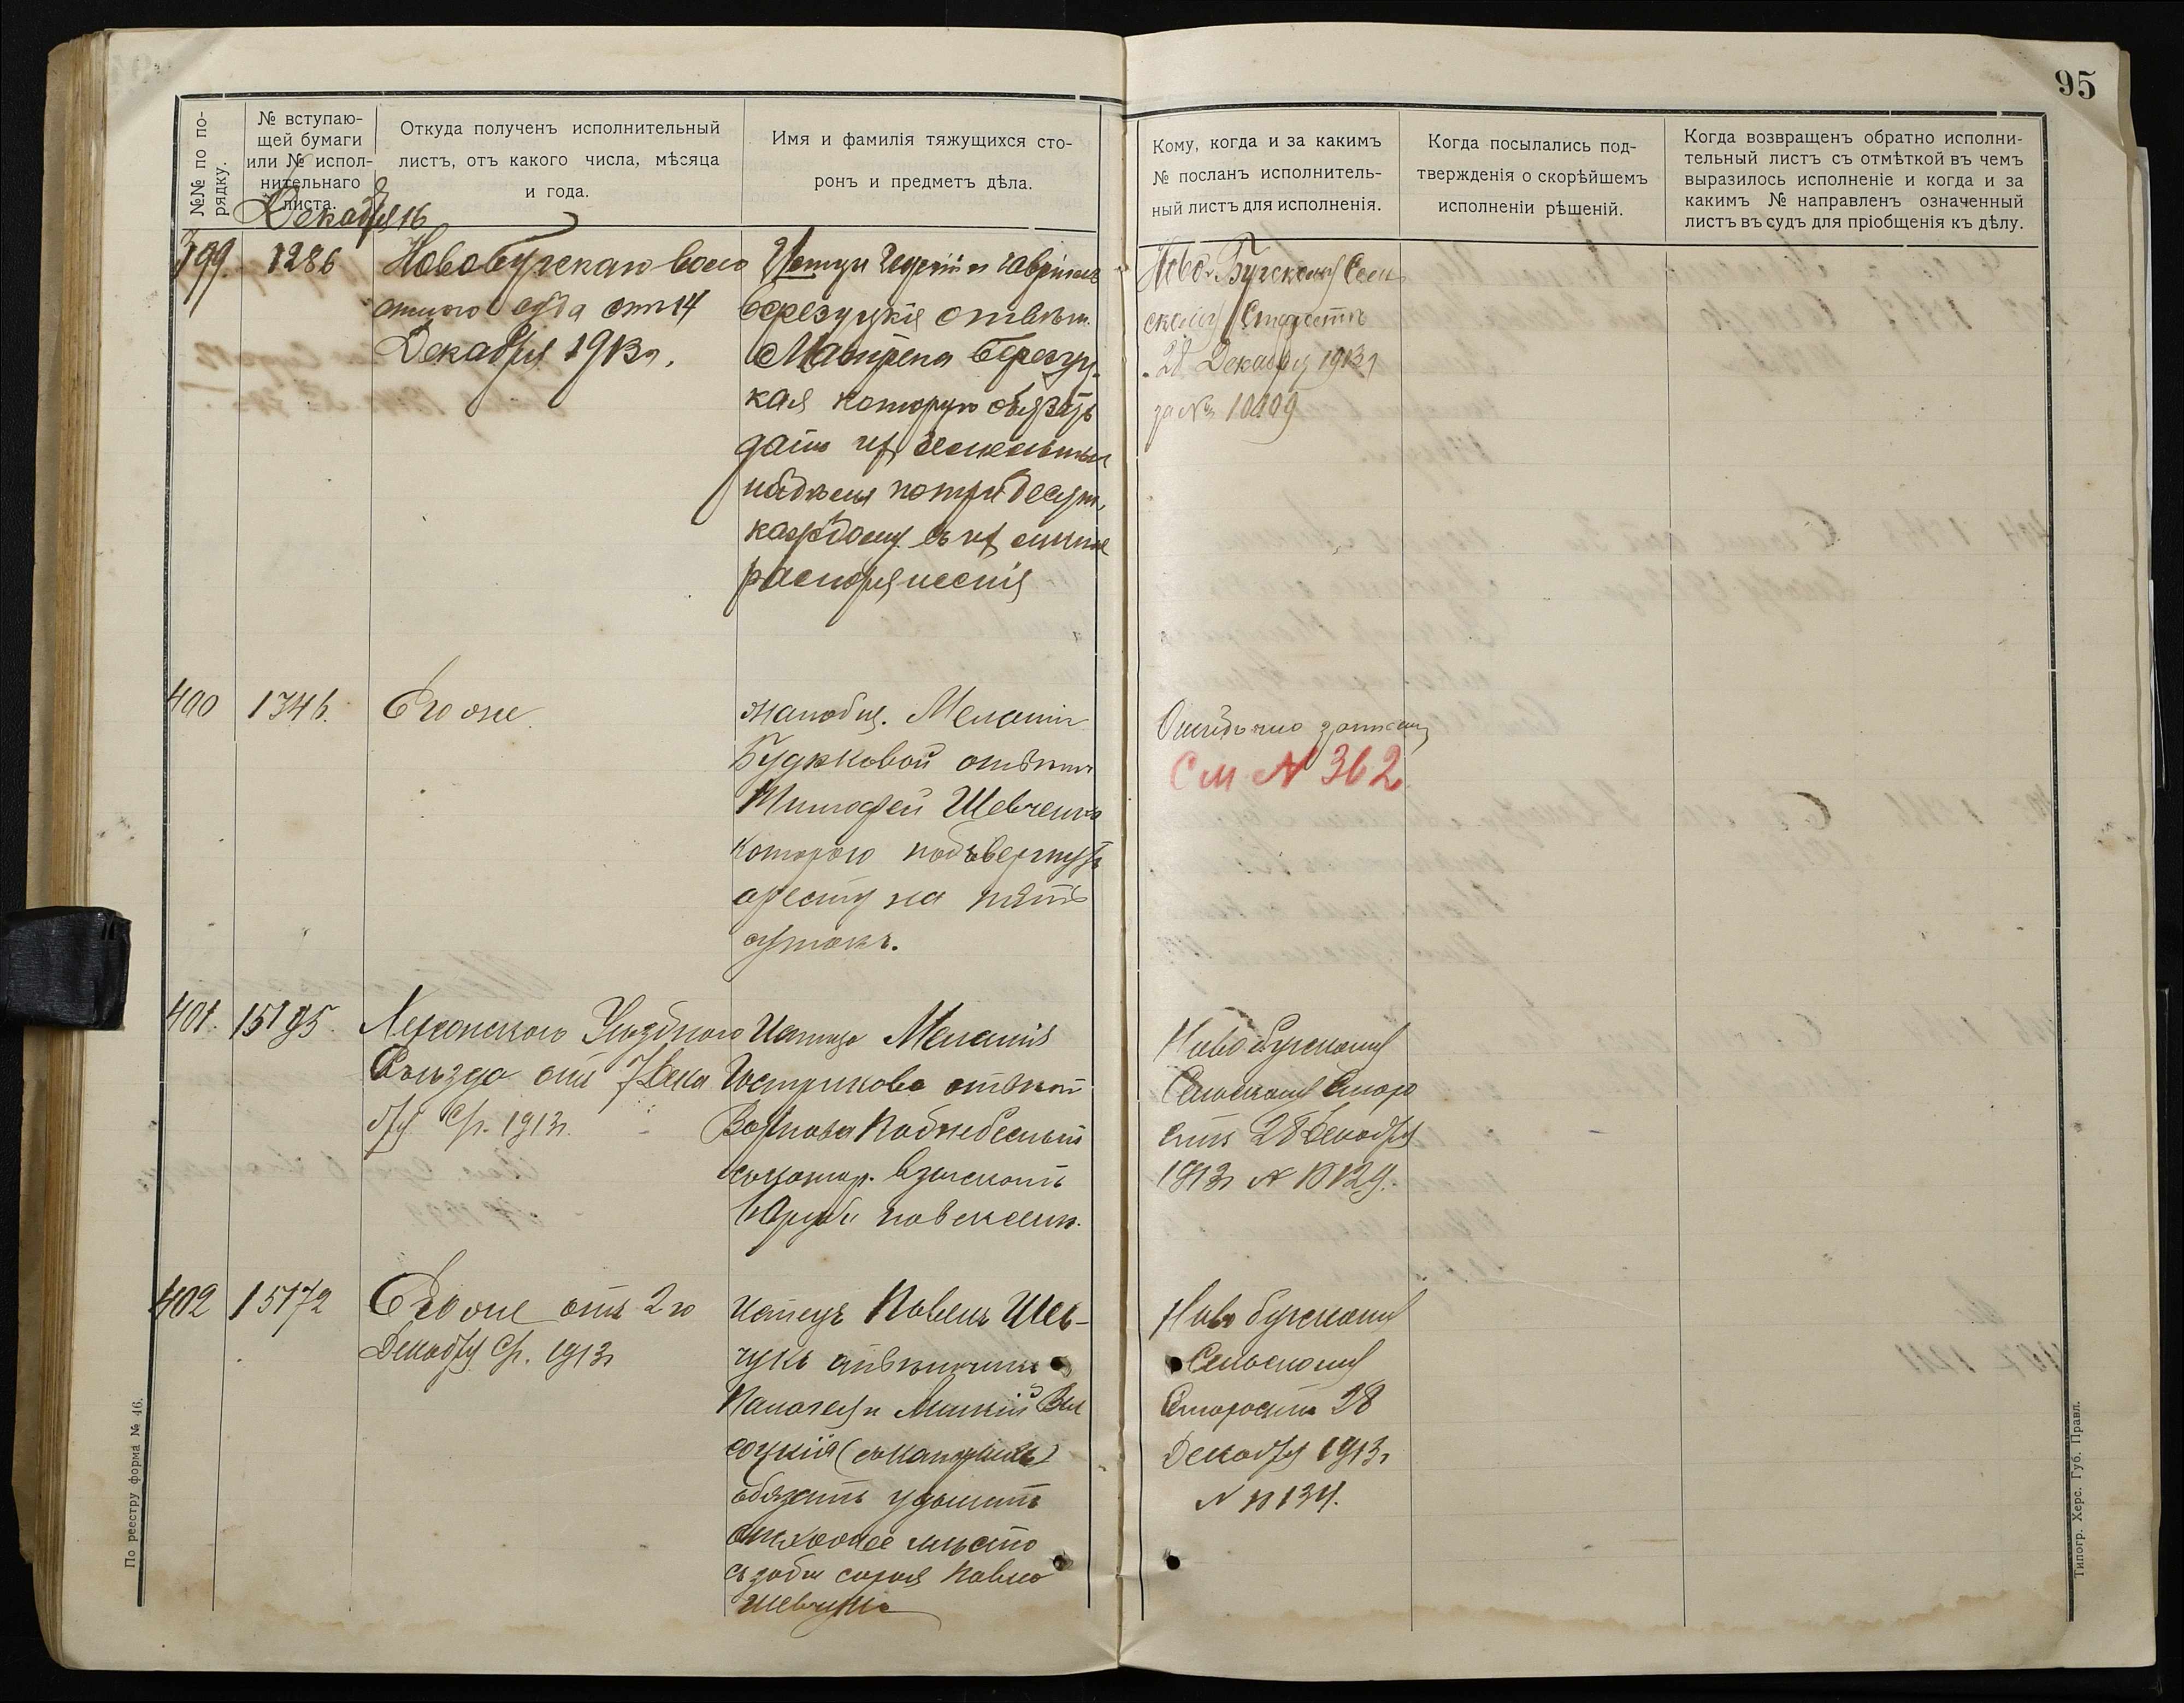 95
№№ по по-
рядку.
№ вступаю-
щей бумаги
или № испол-
нительнаго
листа.
Откуда полученъ исполнительный
листъ, отъ какого числа, мѣсяца
и года.
Имя и фамилія тяжущихся сто-
ронъ и предметъ дѣла.
Кому, когда и за какимъ
№ посланъ исполнитель-
ный листъ для исполненія.
Когда посылались под-
твержденія о скорѣйшемъ
исполненіи рѣшеній.
Когда возвращенъ обратно исполни-
тельный листъ съ отмѣткой въ чемъ
выразилось исполненіе и когда и за
какимъ № направленъ означенный
листъ въ судъ для пріобщенія къ дѣлу.
Декабря 16
399.
1286
Новобугскаго воло
стного суда отъ 14
Декабря 1913 г.
Истцы и
Березуцкіе отвѣт.
Матрена Березуц-
кая которую обязать
дать
надѣла по три десят.
каждому въ их личное
распоряженія
Ново-Бугскому Сель
скому Старостѣ
28 Декабря 1913 г
за № 10109
400
1346.
Его же
жалобщ. Меланіи
Будяковой отвѣтч
Тимофей Шевченко
котораго подвергнуть
аресту на пять
сутокъ.
Ошибочно записан
См № 362
401.
15195.
Херсонскаго Уѣзднаго
Съѣзда отъ 7 Дека
бря Ср. 1913 г.
Истица Меланія
Гострикова отвѣт
Поднебесный
съ котор. взыскать
10 руб.
Новобугскому
Сельскому Старо
стѣ 28 Декабря
1913 г № 10129.
402
15172
Его же отъ 2 го
Декабря Ср. 1913 г
Истецъ Павелъ Шев-
чукъ отвѣтчики
Пелагея и Мокій Вы
соцкія (съ которыхъ)
обязать удалить
отхожее мѣсто
Павла
Шевчука
Новобугскому
Сельскому
Старостѣ 28
Декабря 1913 г
№ 10134.
По реестру форма № 46.
Типогр. Херс. Губ. Правл.